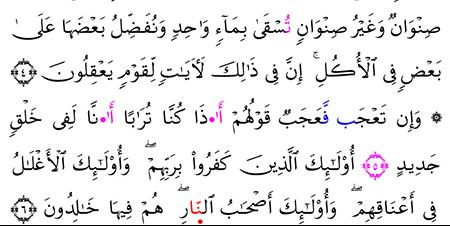 صِنْوَانٌ وَغَيْرُ صِنْوَانٍ تُسْقَىٰ بِمَآءٍ وَٰحِدٍ وَنُفَضِّلُ بَعْضَهَا عَلَىٰ
بَعْضٍ فِى ٱلْأُكُلِۚ إِنَّ فِى ذَٰلِكَ لَأٓيَٰتٍ لِّقَوْمٍ يَعْقِلُونَ ﴿٤﴾
۞ وَإِن تَعْجَب فَّعَجَبٌ قَوْلُهُمْ أَ•ذَا كُنَّا تُرَٰبًا أَ•نَّا لَفِى خَلْقٍ
جَدِيدٍ ﴿٥﴾ أُوْلَٰٓئِكَ ٱلَّذِينَ كَفَرُوا۟ بِرَبِّهِمْۖ وَأُوْلَٰٓئِكَ ٱلْأَغْلَٰلُ
فِى أَعْنَاقِهِمْۖ وَأُوْلَٰٓئِكَ أَصْحَٰبُ ٱلنّ۪ارِۖ هُمْ فِيهَا خَٰلِدُونَ ﴿٦﴾